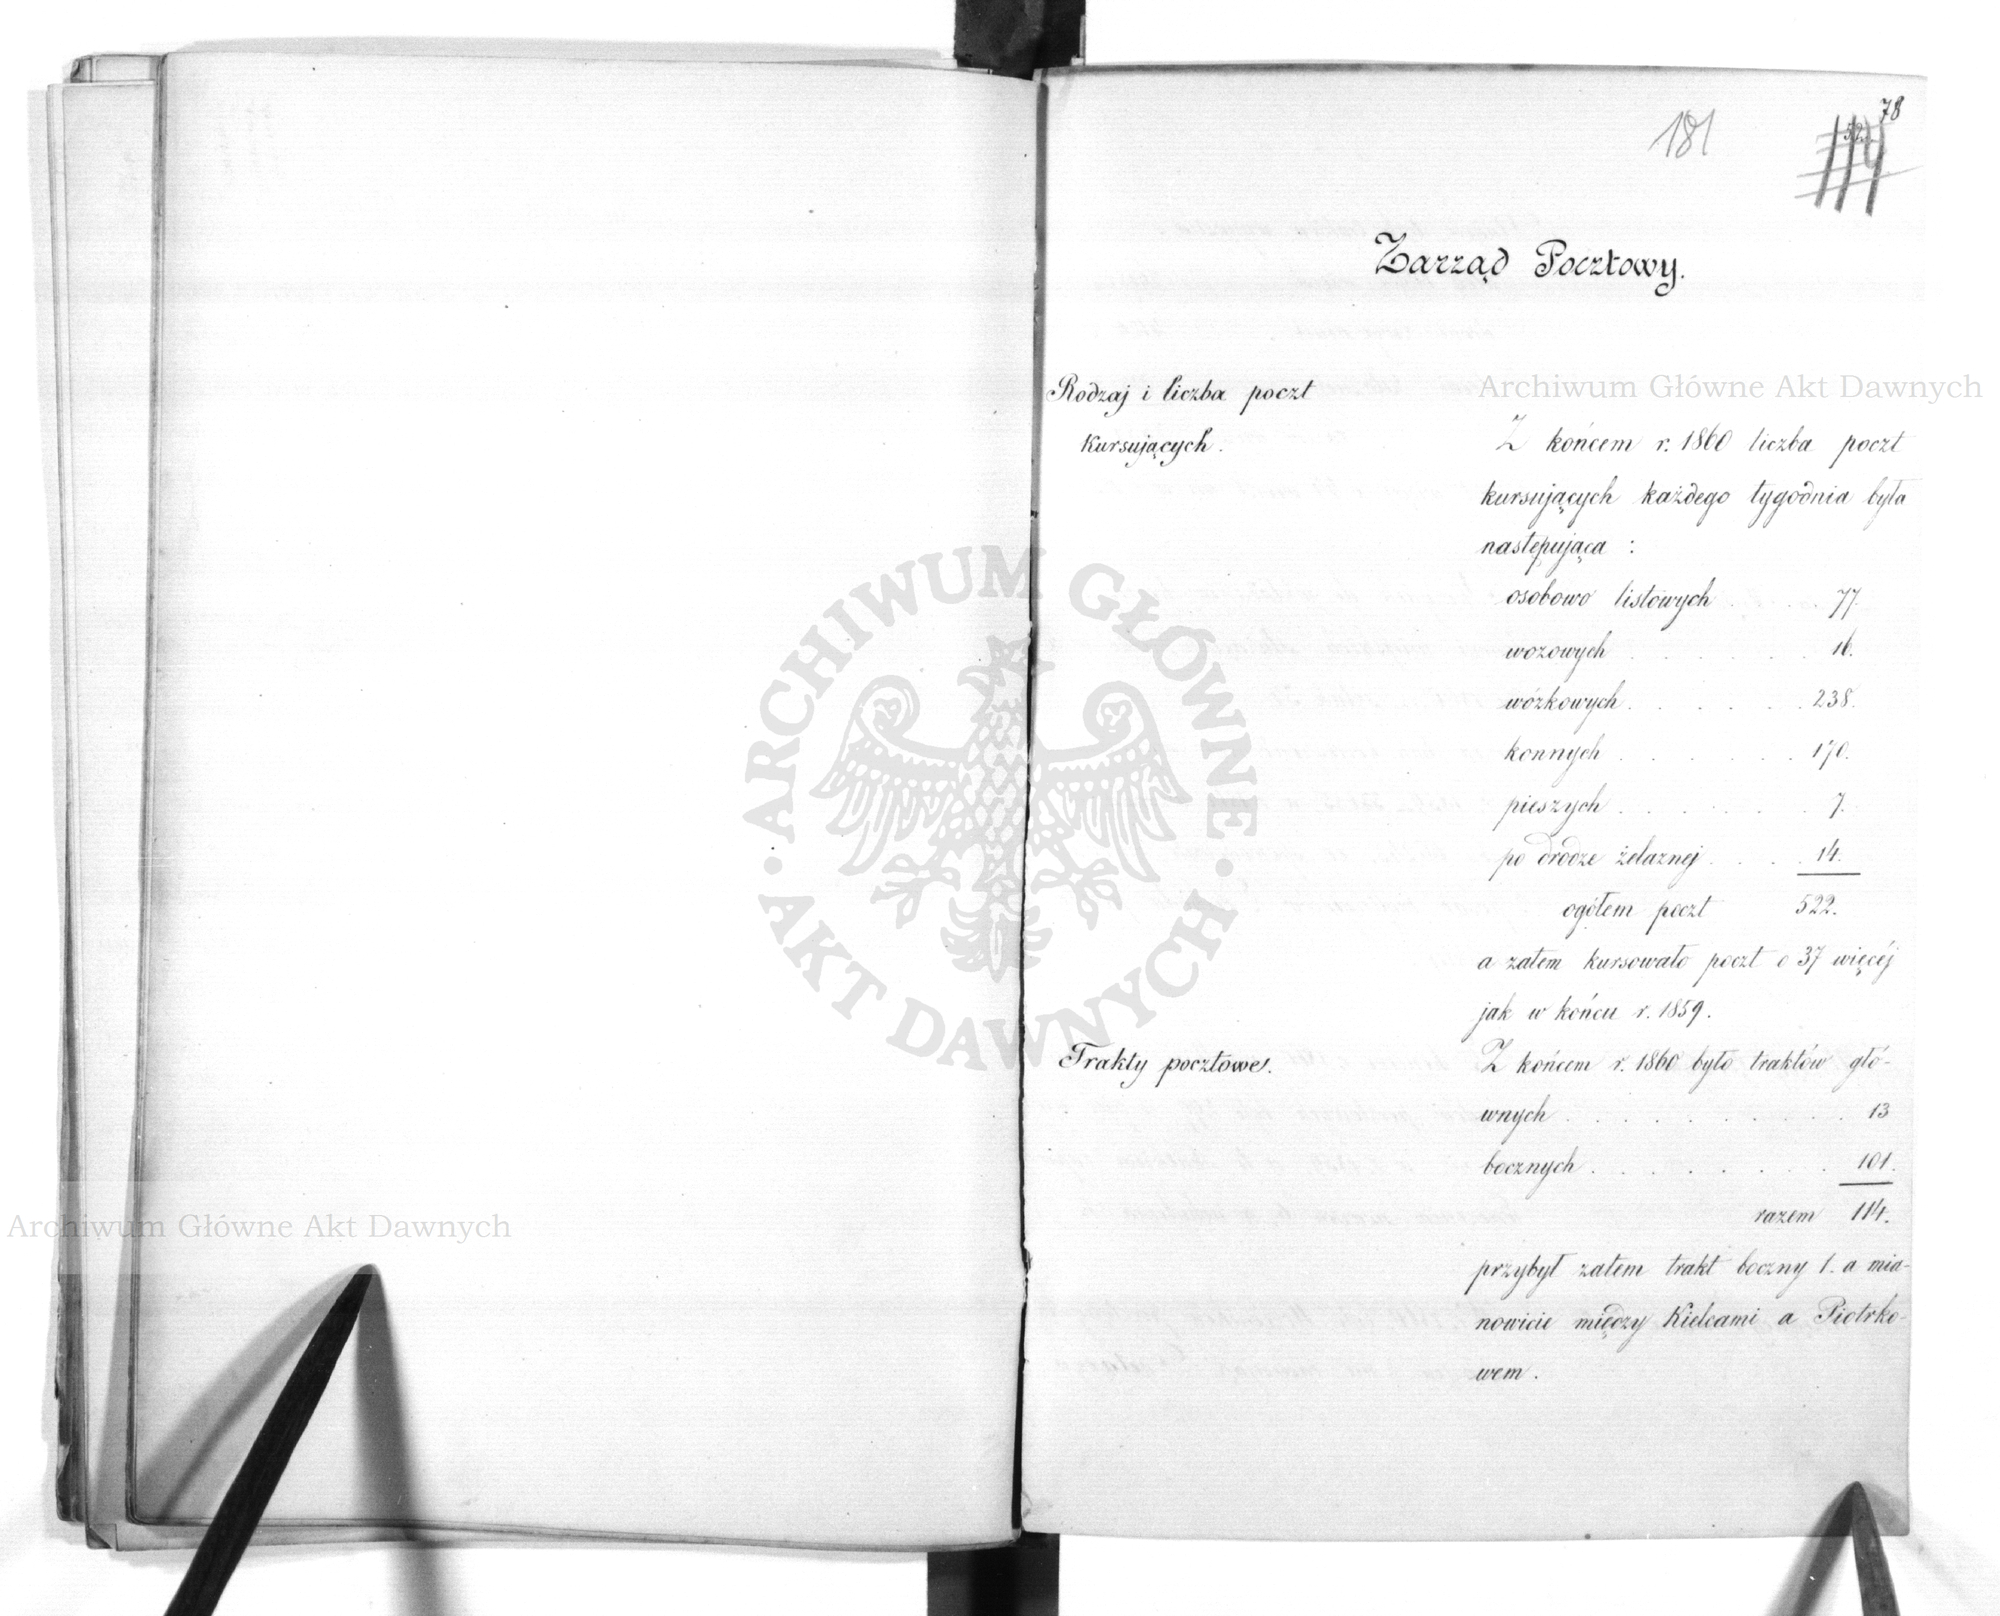 181
78
114
Zarząd Pocztowy.
Rodzaj i liczba poczt
kursujących.
Archiwum Główne Akt Dawnych
Z końcem r. 1860 liczba poczt
kursujących każdego tygodnia była
następująca :
osobowo listowych . . . 77.
wozowych . . . . . . . 16.
wózkowych . . . . . . . 238.
konnych . . . . . . . 170.
pieszych . . . . . . . 7.
po drodze żelaznej . . . . 14.
ogółem poczt 522.
a zatem kursowało poczt o 37 więcéj
jak w końcu r. 1859.
Trakty pocztowe.
Z końcem r. 1860 było traktów głó-
wnych . . . . . . . . . . 13
bocznych . . . . . . . . . 101.
razem 114.
przybył zatem trakt boczny 1. a mia-
nowicie między Kielcami a Piotrko-
wem.
ARCHIWUM GŁÓWNE
AKT DAWNYCH
Archiwum Główne Akt Dawnych